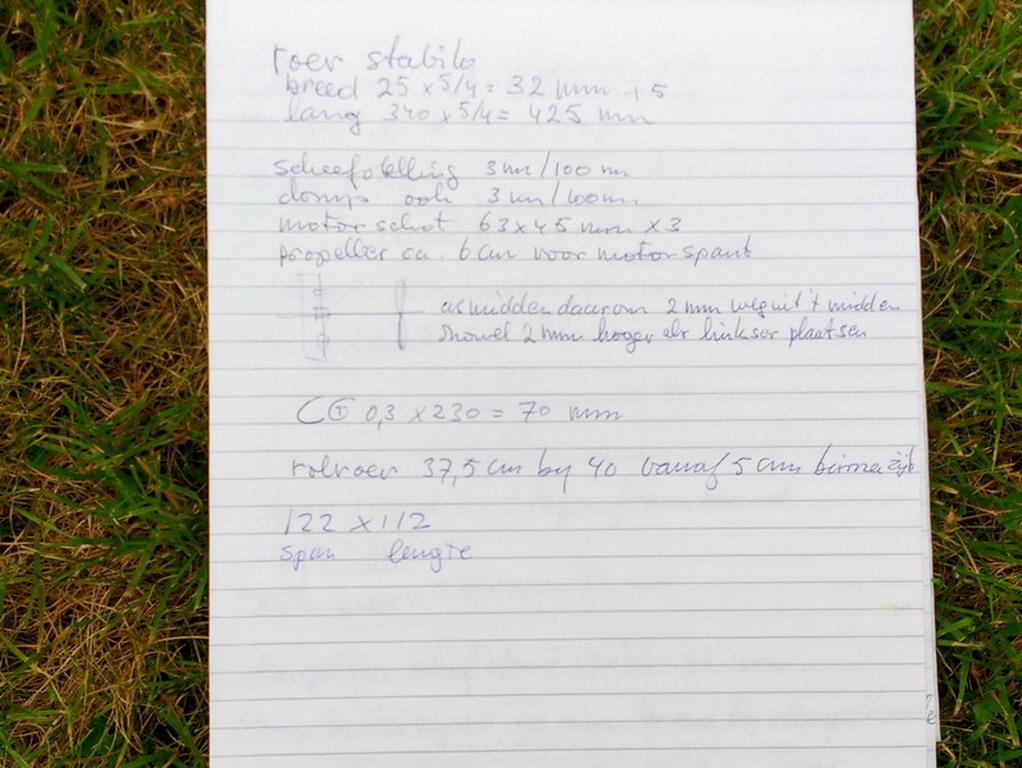 roer stabilo
breed 25 x 5/4 = 32 mm + 5
lang 340 x 5/4 = 425 mm
scheefstelling 3 mm/100 mm
domp ook 3 mm/100mm
motorschot 63 x 45 mm x 3
propeller ca. 6 cm voor motorspant
as midden daarom 2 mm weg uit 't midden
2 mm hoger als linkser plaatsen
CG 0,3 x 230 = 70 mm
rolroer 37,5 cm by 40 vanaf 5 cm binnenzijde
122 x 112
span lengte